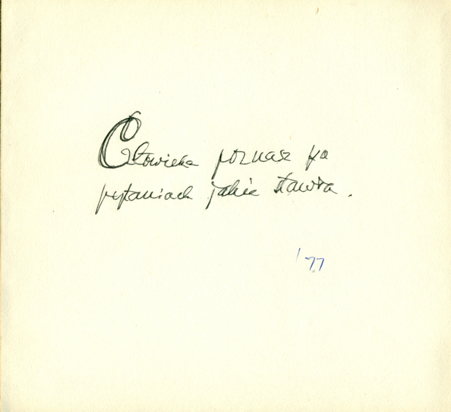 Człowieka poznasz po
pytaniach jakie stawia.
'77